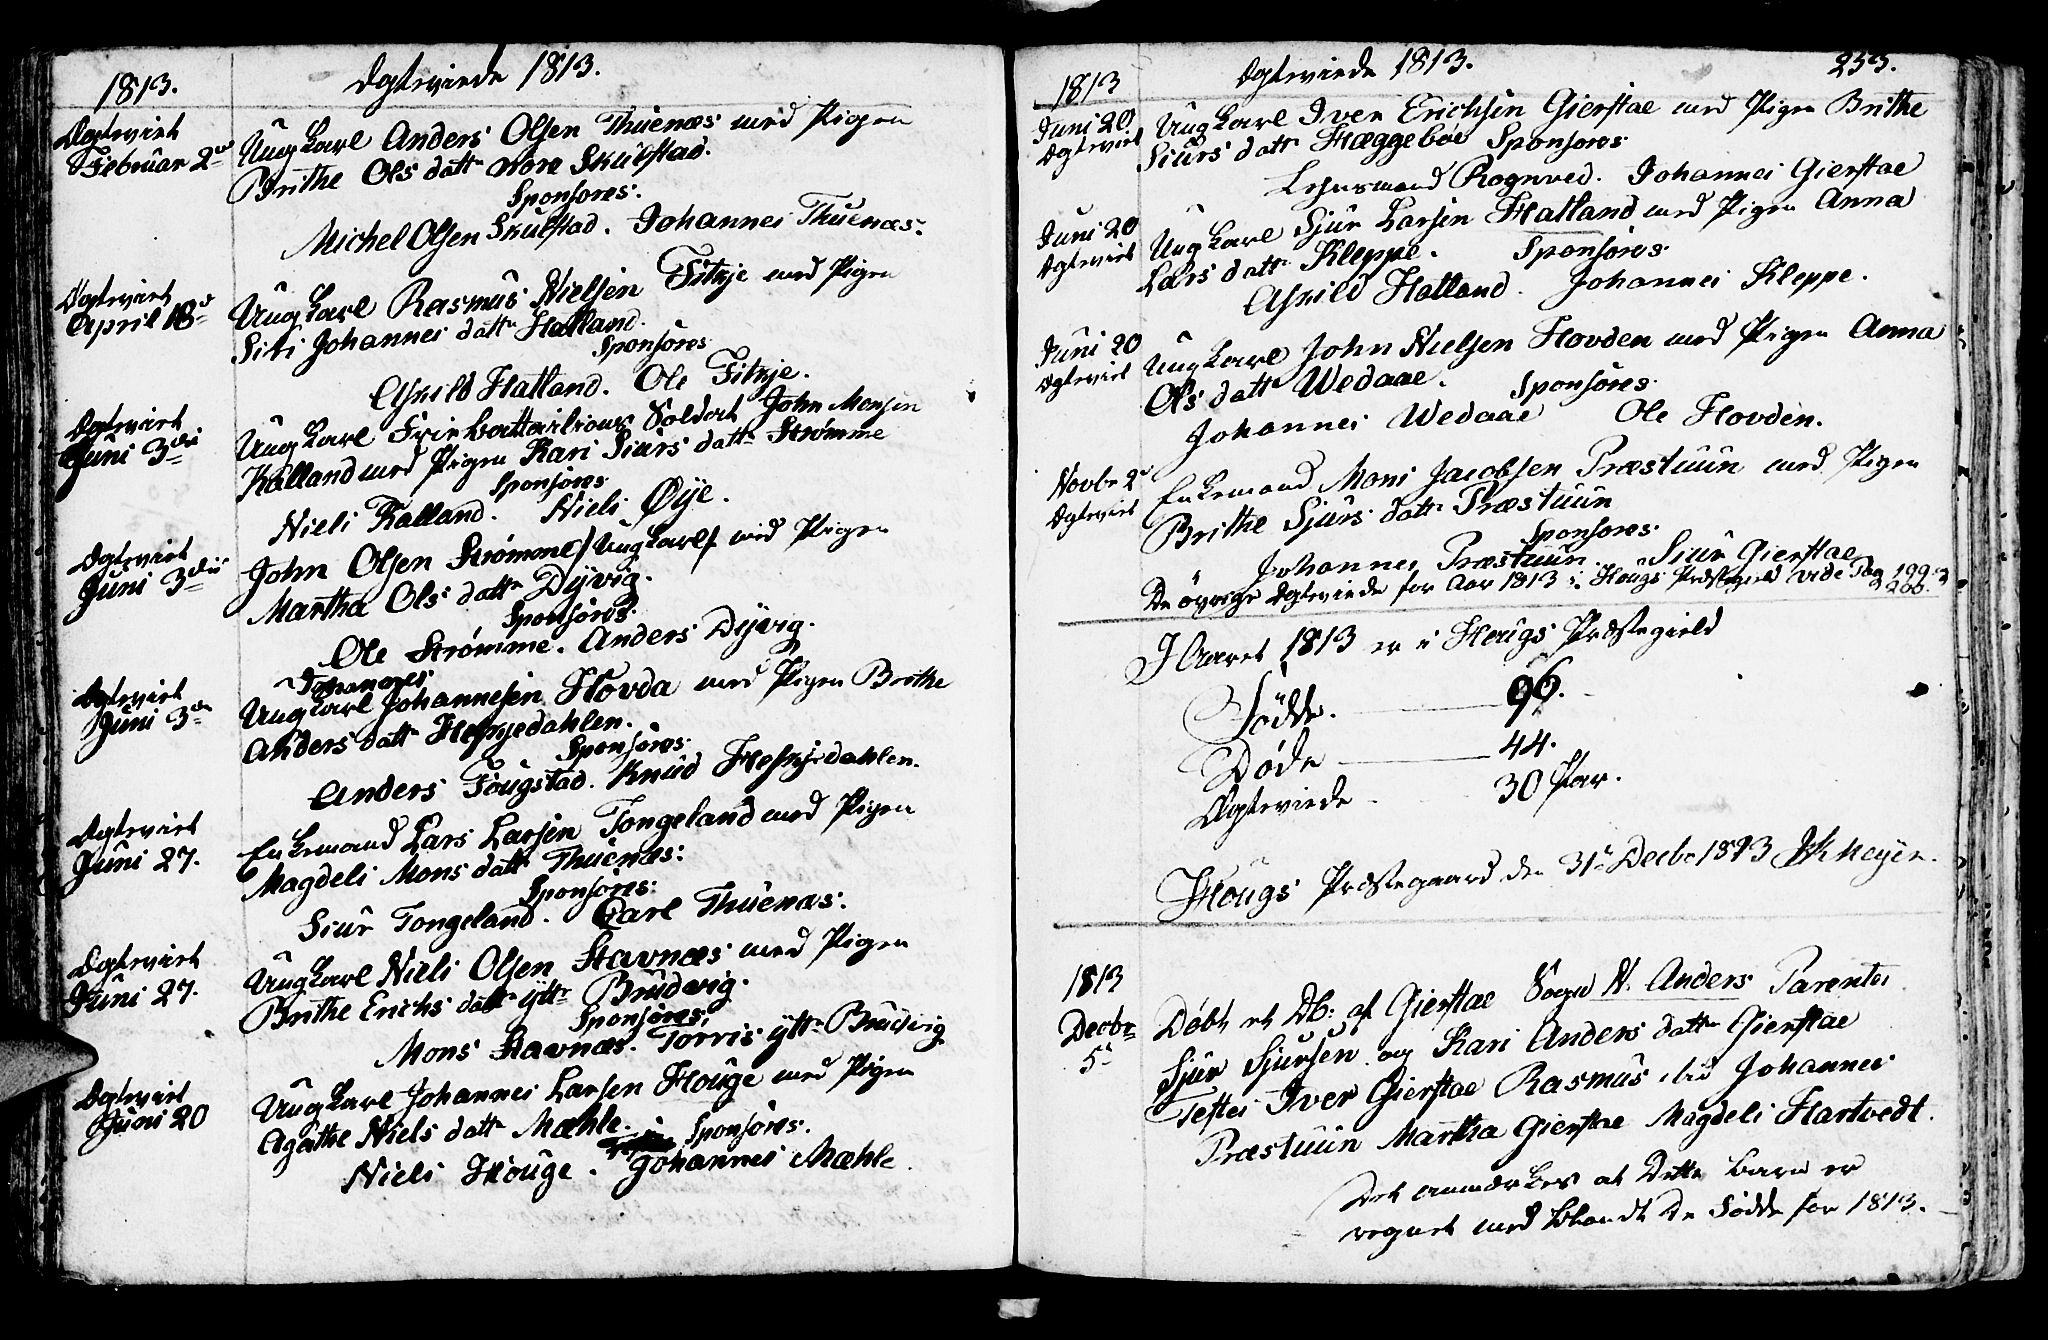 1813.
Ægteviede 1813.
Ægteviet
Februar 2den
Ungkarl Anders Olsen Thuenæs med Pigen
Brithe Ols datt: nore Skulstad.
Sponsores:
Michel Olsen Skulstad. Johannes Thuenæs.
Ægteviet
April 18de
Ungkarl Rasmus Nielsen Fitzje med Pigen
Siri Johannes datt: Hatland.
Sponsores
Eskild Hatland. Ole Fitzje.
Ægteviet
Juni 3die
Ungkarl Friebattailions Soldat John Monsen
Kalland med Pigen Kari Siurs datt: Strømme
Sponsores
Niels Kalland. Niels Øye.
Ægteviet
Juni 3die
John Olsen Strømme /Ungkarl/ med Pigen
Martha Ols datt: Dyvig.
Sponsores
Ole Strømme. Anders Dyvig.
Ægteviet
Juni 3die
Johannes
Ungkarl Johannesen Hovda med Pigen Brithe
Anders datt: Heskjedahlen.
Sponsores:
Anders Fougstad. Knud Heskjedahlen.
Ægteviet
Juni 27.
Enkemand Lars Larsen Tongeland med Pigen
Magdeli Mons datt: Thuenæs:
Sponsores:
Siur Tongeland. Carl Thuenæs:
Ægteviet
Juni 27.
Ungkarl Niels Olsen Stavnæs med Pigen
Brithe Erichs datt: ytt: Brudvig.
Sponsores:
Mons Stavnæs. Torris ytt: Brudvig
Ægteviet
Juni 20
Ungkarl Johannes Larsen Houge med Pigen
Agathe Niels datt: Mæhle.
Sponsores.
Niels Houge. Johannes Mæhle.
1813
Ægteviede 1813.
233.
Juni 20.
Ægteviet
Ungkarl Iver Erichsen Gierstae med Pigen Brithe
Siurs datt: Hæggebøe Sponsores
Lehnsmand Rognved. Johannes Gierstae
Juni 20
Ægteviet
Ungkarl Sjur Larsen Hatland med Pigen Anna
Lars datt: Kleppe. Sponsores
Eskild Hatland. Johannes Kleppe.
Juni 20
Ægteviet
Ungkarl John Nielsen Hovden med Pigen Anna
Ols datt: Wedaae. Sponsores
Johannes Wedaae Ole Hovden.
Novbr 2
Ægteviet
Enkemand Mons Jacobsen Præstuun med Pigen
Brithe Sjurs datt: Præstuun
Sponsores:
Johannes Præstuun. Siur Gierstae
De øvrige Ægteviede for Aar 1813 i Hougs Præstegield vide Pag 199 &
200.
I Aaret 1813 er i Hougs Præstegield
Födde. 96.
Døde 44.
Ægteviede 30 Par.
Hougs Præstegaard den 31te Decbr 1813 JKMeyer.
1813
Decbr
5te
Døbt et Db: af Gierstae Sogn N. Anders Parentes
Sjur Sjursen og Kari Anders datt: Gierstae
Testes Iver Gierstae Rasmus Johannes
Præstuun Martha Gierstae Magdeli Hartvedt.
Det anmærkes at Dette Barn er
regnet med blandt De Födde for 1813.